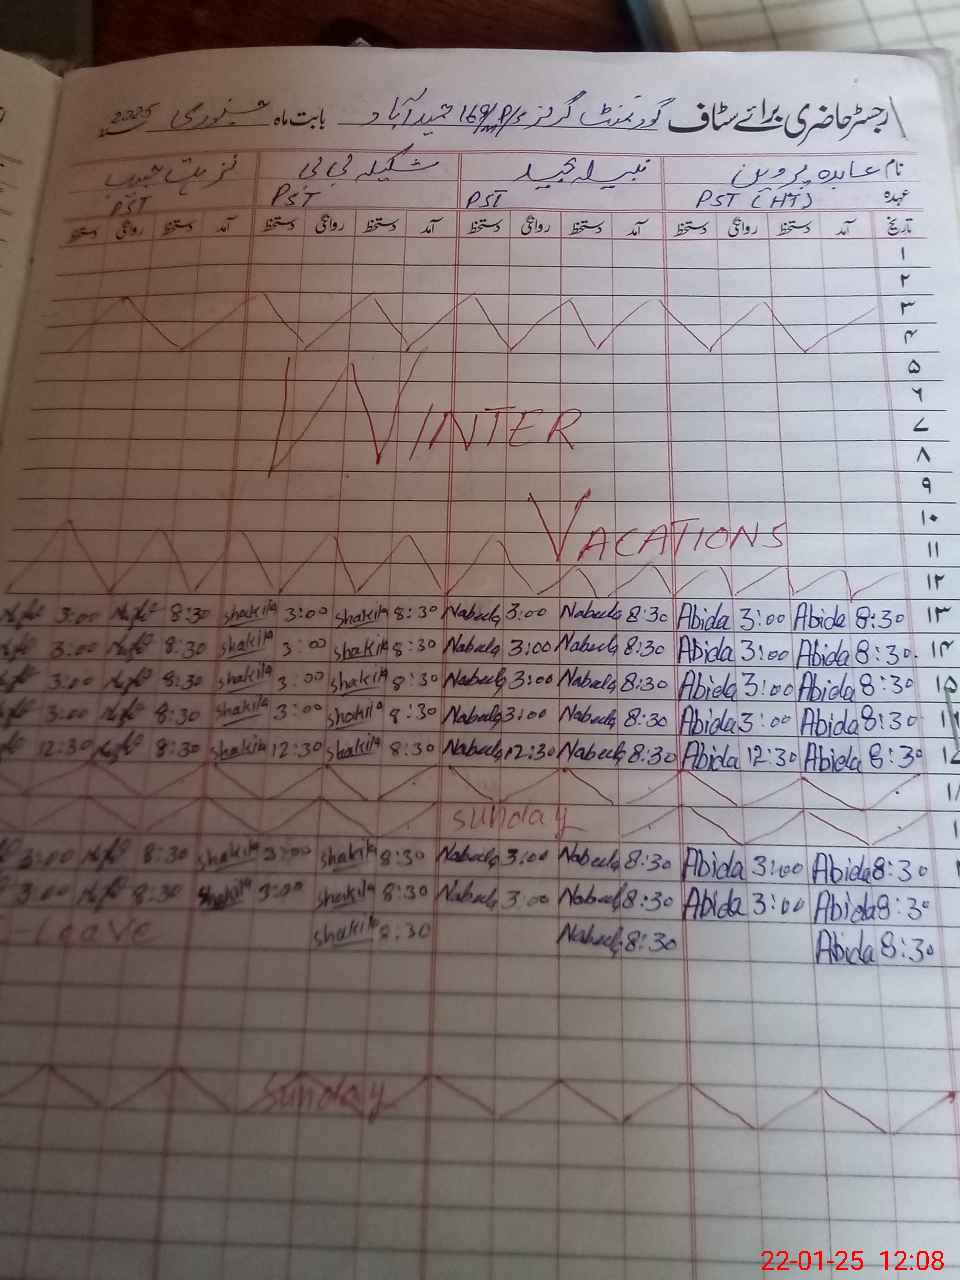 رجسٹر حاضری برائے سٹاف گورنمنٹ گرلز 169/P حمیدآباد بابت ماہ جنوری 2025
نام عابدہ پروین نبیلہ مجید شکیلہ بی بی
عہدہ PST (HT) PST PST PST
تاریخ آمد دستخط روانگی دستخط آمد دستخط روانگی دستخط آمد دستخط روانگی دستخط دستخط روانگی دستخط
۱
۲
۳
۴
۵
۶
۷
۸
۹
۱۰
۱۱
۱۲
WINTER
VACATIONS
3:00 8:30 Shakila 3:00 Shakila 8:30 Nabeela 3:00 Nabeela 8:30 Abida 3:00 Abida 8:30 ۱۳
3:00 8:30 Shakila 3:00 Shakila 8:30 Nabeela 3:00 Nabeela 8:30 Abida 3:00 Abida 8:30 ۱۴
3:00 8:30 Shakila 3:00 Shakila 8:30 Nabeela 3:00 Nabeela 8:30 Abida 3:00 Abida 8:30 ۱۵
3:00 8:30 Shakila 3:00 Shakila 8:30 Nabeela 3:00 Nabeela 8:30 Abida 3:00 Abida 8:30
12:30 8:30 Shakila 12:30 Shakila 8:30 Nabeela 12:30 Nabeela 8:30 Abida 12:30 Abida 8:30
Sunday
3:00 8:30 Shakila 3:00 Shakila 8:30 Nabeela 3:00 Nabeela 8:30 Abida 3:00 Abida 8:30
3:00 8:30 Shakila 3:00 Shakila 8:30 Nabeela 3:00 Nabeela 8:30 Abida 3:00 Abida 8:30
Leave Shakila 8:30 Nabeela 8:30 Abida 8:30
Sunday
22-01-25 12:08